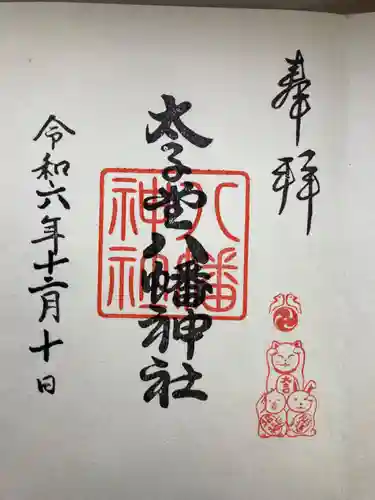 奉拝
太子堂八幡神社
八幡
神社
令和六年十二月十日